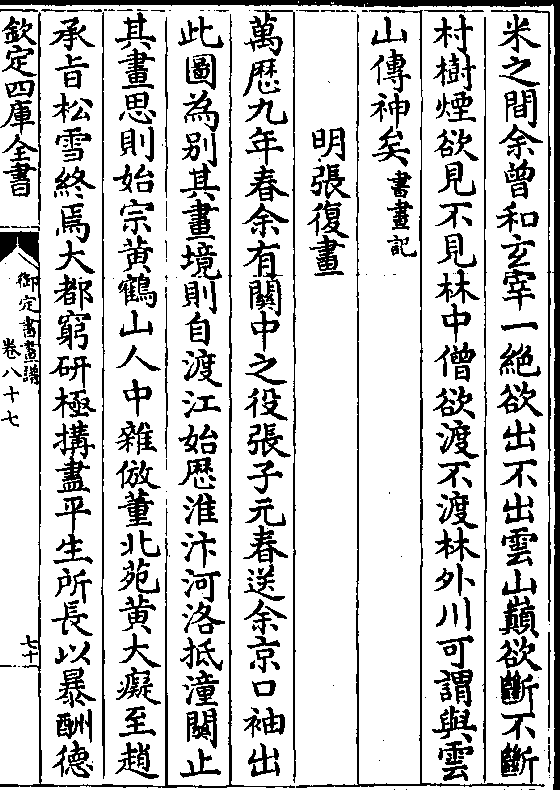 米之間余曾和玄宰一絕欲出不出雲山巔欲斷不斷
村樹煙欲見不見林中僧欲渡不渡林外川可謂與雲
山傳神矣書畫記
明張復畫
萬歷九年春余有關中之役張子元春送余京口袖出
此圖為别其畫境則自渡江始歷淮汴河洛抵潼關止
其畫思則始宗黃鶴山人中雜倣董北苑黃大癡至趙
承旨松雪終焉大都窮研極搆盡平生所長以暴酬德
欽定四庫全書
御定書畫譜
卷八十七
七十